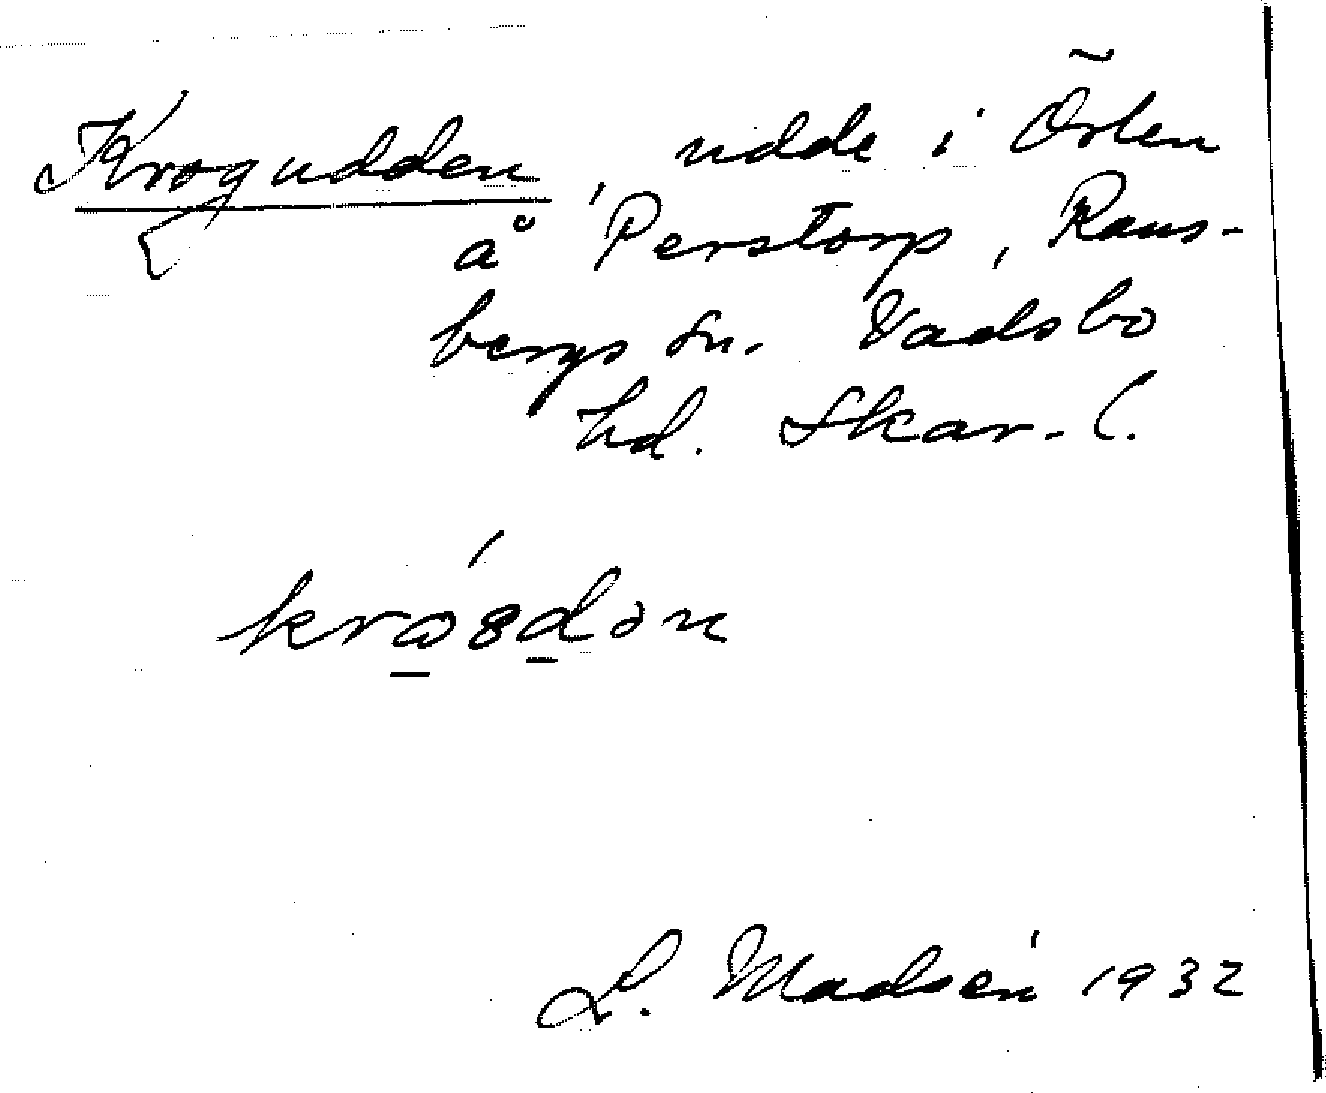 Krogudden, udde i Örlen
å Perstorp, Rans-
bergs sn. Vadsbo
hd. Skar. l.
L. Madsén 1932